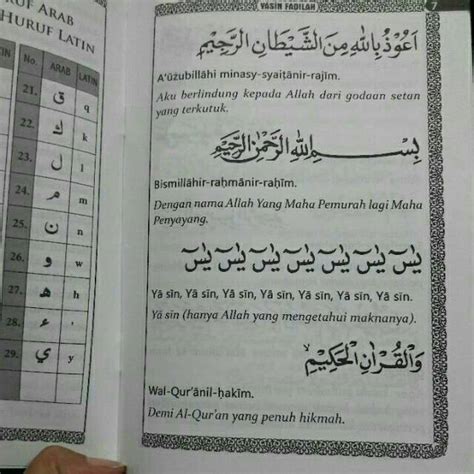 RUF ARAB
HURUF LATIN
No. ARAB LATIN
21. ق q
22. ك k
23. ل l
24. م m
25. ن n
26. و w
27. ه h
28. ء ,
29. ي y
YASIN FADILAH 7
اَعُوْذُ بِاللهِ مِنَ الشَّيْطَانِ الرَّجِيْمِ
A'ūżubillāhi minasy-syaiṭānir-rajīm.
Aku berlindung kepada Allah dari godaan setan
yang terkutuk.
بِسْمِ اللهِ الرَّحْمٰنِ الرَّحِيْمِ
Bismillāhir-raḥmānir-raḥīm.
Dengan nama Allah Yang Maha Pemurah lagi Maha
Penyayang.
يٰسۤ يٰسۤ يٰسۤ يٰسۤ يٰسۤ يٰسۤ يٰسۤ
Yā sīn, Yā sīn, Yā sīn, Yā sīn, Yā sīn, Yā sīn, Yā sīn.
Yā sīn (hanya Allah yang mengetahui maknanya).
وَالْقُرْاٰنِ الْحَكِيْمِۙ
Wal-Qur'ānil-ḥakīm.
Demi Al-Qur'an yang penuh hikmah.